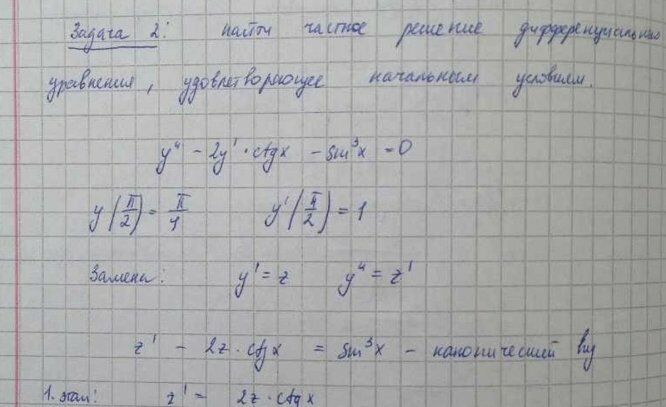 Задача 2: найти частное решение дифференциального
уравнения, удовлетворяющее начальным условиям.
y'' - 2y' · ctgx - sin³x = 0
y(π/2) = π/4 y'(π/2) = 1
Замена: y' = z y'' = z'
z' - 2z · ctgx = sin³x - канонический вид
1. этап: z' = 2z · ctgx